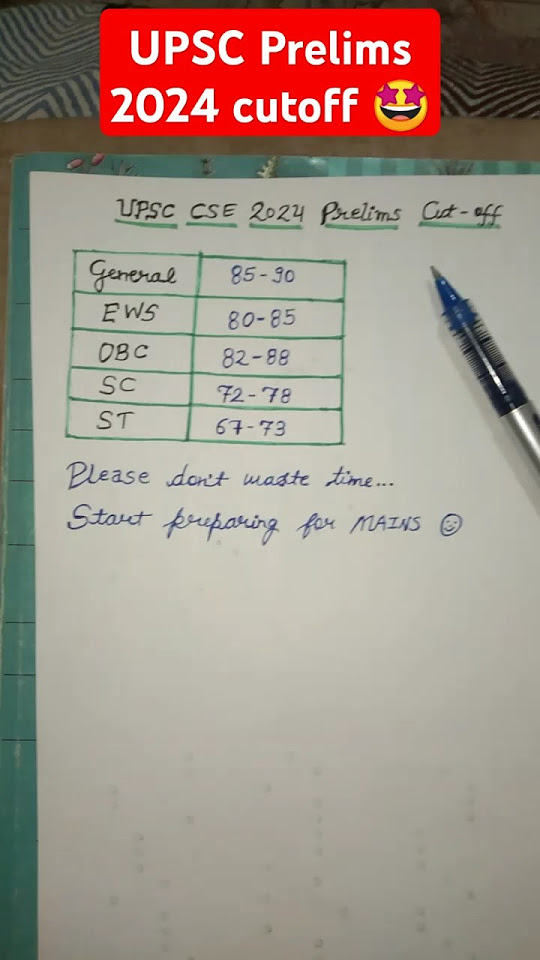 UPSC Prelims
2024 cutoff 🤩
UPSC CSE 2024 Prelims Cut-off
General 85-90
EWS 80-85
OBC 82-88
SC 72-78
ST 67-73
Please don't waste time...
Start preparing for MAINS ☺